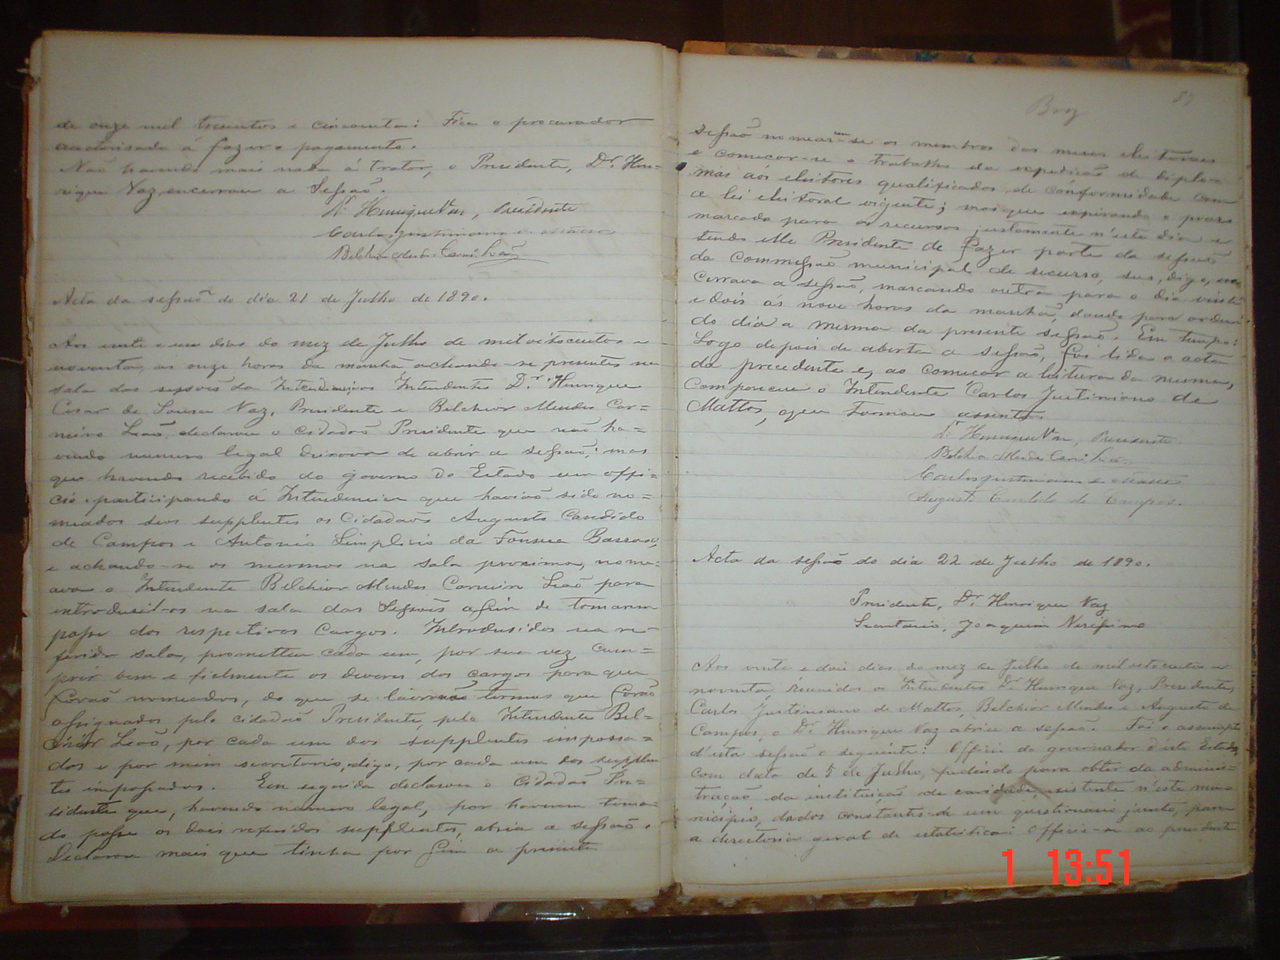 de onze mil tresentos e cincoenta: Fica o procurador
auctorisado á fazer o pagamento.
Não havendo mais nada á tratar, o Presidente, Dr. Hen=
rique Vaz encerrou a Sessão.
Dr. Henrique Vaz, Presidente
Carlos Justiniano de Mattos
Belchior Mendes Carnº Leão
Acta da sessão do dia 21 de Julho de 1890.
Aos vinte e um dias do mez de Julho de mil oitocentos e
noventa, as onze horas da manhã, achando-se presentes na
sala das sessões da Intendencia, os Intendentes Dr. Henrique
Cesar de Sousa Vaz, Presidente e Belchior Mendes Car=
neiro Leão, declarou o cidadão Presidente que não ha=
vendo numero legal deixava de abrir a sessão; mas
que havendo recebido do governo do Estado um offi=
cio participando á Intendencia que haviaõ sido no=
meados seus supplentes os Cidadaõs Augusto Candido
de Campos e Antonio Simplicio da Fonseca Barroso,
e achando-se os mesmos na sala proxima, nome=
ava o Intendente Belchior Mendes Carneiro Leão para
introdusil-os na sala das Sessões afim de tomarem
posse dos respectivos Cargos. Introdusidos na re=
ferida sala, prometteu cada um, por sua vez, cum=
prir bem e fielmente os deveres dos cargos para que
foraõ nomeados, do que se lavraraõ termos que foraõ
assignados pelo cidadão Presidente, pelo Intendente Bel=
chior Leão, por cada um dos supplentes impossa=
dos e por mim secretario, digo, por cada um dos supplen
tes impossados. Em seguida declarou o Cidadão Pre=
sidente que, havendo numero legal, por haverem toma=
do posse os dois referidos supplentes, abria a sessão.
Declarou mais que tinha por fim a presente
Broz
87
sessão nomear-se os membros das mesas eleitoraes
e começar-se o trabalho da expedição de diplo=
mas aos eleitores qualificados de conformidade com
a lei eleitoral vigente; mas que expirando o praso
marcado para os recursos justamente n'este dia e
tendo elle Presidente de fazer parte da sessão
da Commissão municipal de recurso, sus, digo, en=
cerrava a sessão, marcando outra para o dia vinte
e dois ás nove horas da manhã, dando para ordem
do dia a mesma da presente sessão. Em tempo:
Logo depois de aberta a sessão, foi lida a acta
da precedente e, ao começar a leitura da mesma,
Compareceu o Intendente Carlos Justiniano de
Mattos, que tomou assento.
Dr. Henrique Vaz, Presidente
Belchior Mendes Carnº Leão
Carlos Justiniano de Mattos
Augusto Candido de Campos.
Acta da sessão do dia 22 de Julho de 1890.
Presidente, Dr. Henrique Vaz
Secretario, Joaquim Nerefino
Aos vinte e dois dias do mez de Julho de mil oitocentos e
noventa, reunidos os Intendentes Dr. Henrique Vaz, Presidente,
Carlos Justiniano de Mattos, Belchior Mendes e Augusto de
Campos, o Dr. Henrique Vaz abriu a sessão. Foi o assumpto
d'esta sessão o seguinte: Officio do governador d'este Estado,
com data de 5 de Julho, pedindo para obter da adminis=
tração da instituição de caridade, existente n'este mu=
nicipio, dados constantes de um questionario junto, para
a directoria geral de estatistica: Officie-se ao presidente
1 13:51